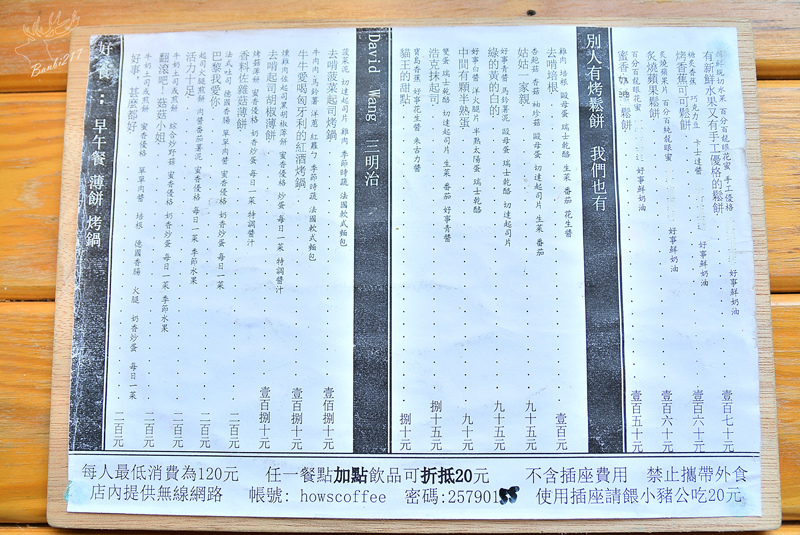 Banbi217
別人有烤鬆餅 我們也有
有新鮮水果又有手工優格的鬆餅 壹百七十元
百分百龍眼花蜜 手工優格 好事鮮奶油
烤香蕉可可鬆餅 壹百六十元
糖炙香蕉 巧克力豆 卡士達醬 好事鮮奶油
炙燒蘋果鬆餅 壹百六十元
炙燒蘋果片 百分百純龍眼蜜 好事鮮奶油
蜜香奶油鬆餅 壹百五十元
百分百龍眼花蜜 好事鮮奶油
David Wang 三明治
去啃培根 壹百元
雞肉 培根 歐姆蛋 瑞士乾酪 生菜 番茄 花生醬
姑姑一家親 九十五元
杏鮑菇 香菇 袖珍菇 歐姆蛋 切達起司片 生菜 番茄
綠的黃的白的 九十五元
好事青醬 馬鈴薯泥 歐姆蛋 瑞士乾酪 切達起司片
中間有顆半熟蛋 九十元
好事肉醬 洋火腿片 半熟太陽蛋 瑞士乾酪
浩克抹起司 捌十五元
雙蛋 瑞士乾酪 切達起司片 生菜 番茄 好事青醬
貓王的甜點 捌十元
寶島香蕉 好事花生醬 朱古力醬
好餐: 早午餐 薄餅 烤鍋
去啃菠菜起司烤鍋 壹佰捌十元
菠菜泥 切達起司片 雞肉 季節時蔬 法國軟式麵包
牛牛愛喝匈牙利的紅酒烤鍋 壹百捌十元
牛肉肉 馬鈴薯 洋蔥 紅蘿ㄅ 季節時蔬 法國軟式麵包
去啃起司胡椒薄餅 壹百捌十元
燻雞肉佐起司黑胡椒薄餅 蜜香優格 奶香炒蛋 每日一菜 特調醬汁
香料佐雜菇薄餅
烤菇薄餅 蜜香優格 奶香炒蛋 每日一菜 特調醬汁
巴黎我愛你 二百元
法式吐司 德國香腸 單單肉醬 蜜香優格 奶香炒蛋 每日一菜
活力十足 二百元
起司火腿煎餅 肉醬番茄薯泥 蜜香優格 每日一菜 季節水果
翻滾吧 菇菇小姐 二百元
牛奶土司或煎餅 綜合炒野菇 蜜香優格 奶香炒蛋 每日一菜 季節水果
好事,甚麼都好 二百元
牛奶土司或煎餅 蜜香優格 單單肉醬 培根 德國香腸 火腿 奶香炒蛋 每日一菜
每人最低消費為120元 任一餐點加點飲品可折抵20元 不含插座費用 禁止攜帶外食
店內提供無線網路 帳號: howscoffee 密碼:25790155 使用插座請餵小豬公吃20元